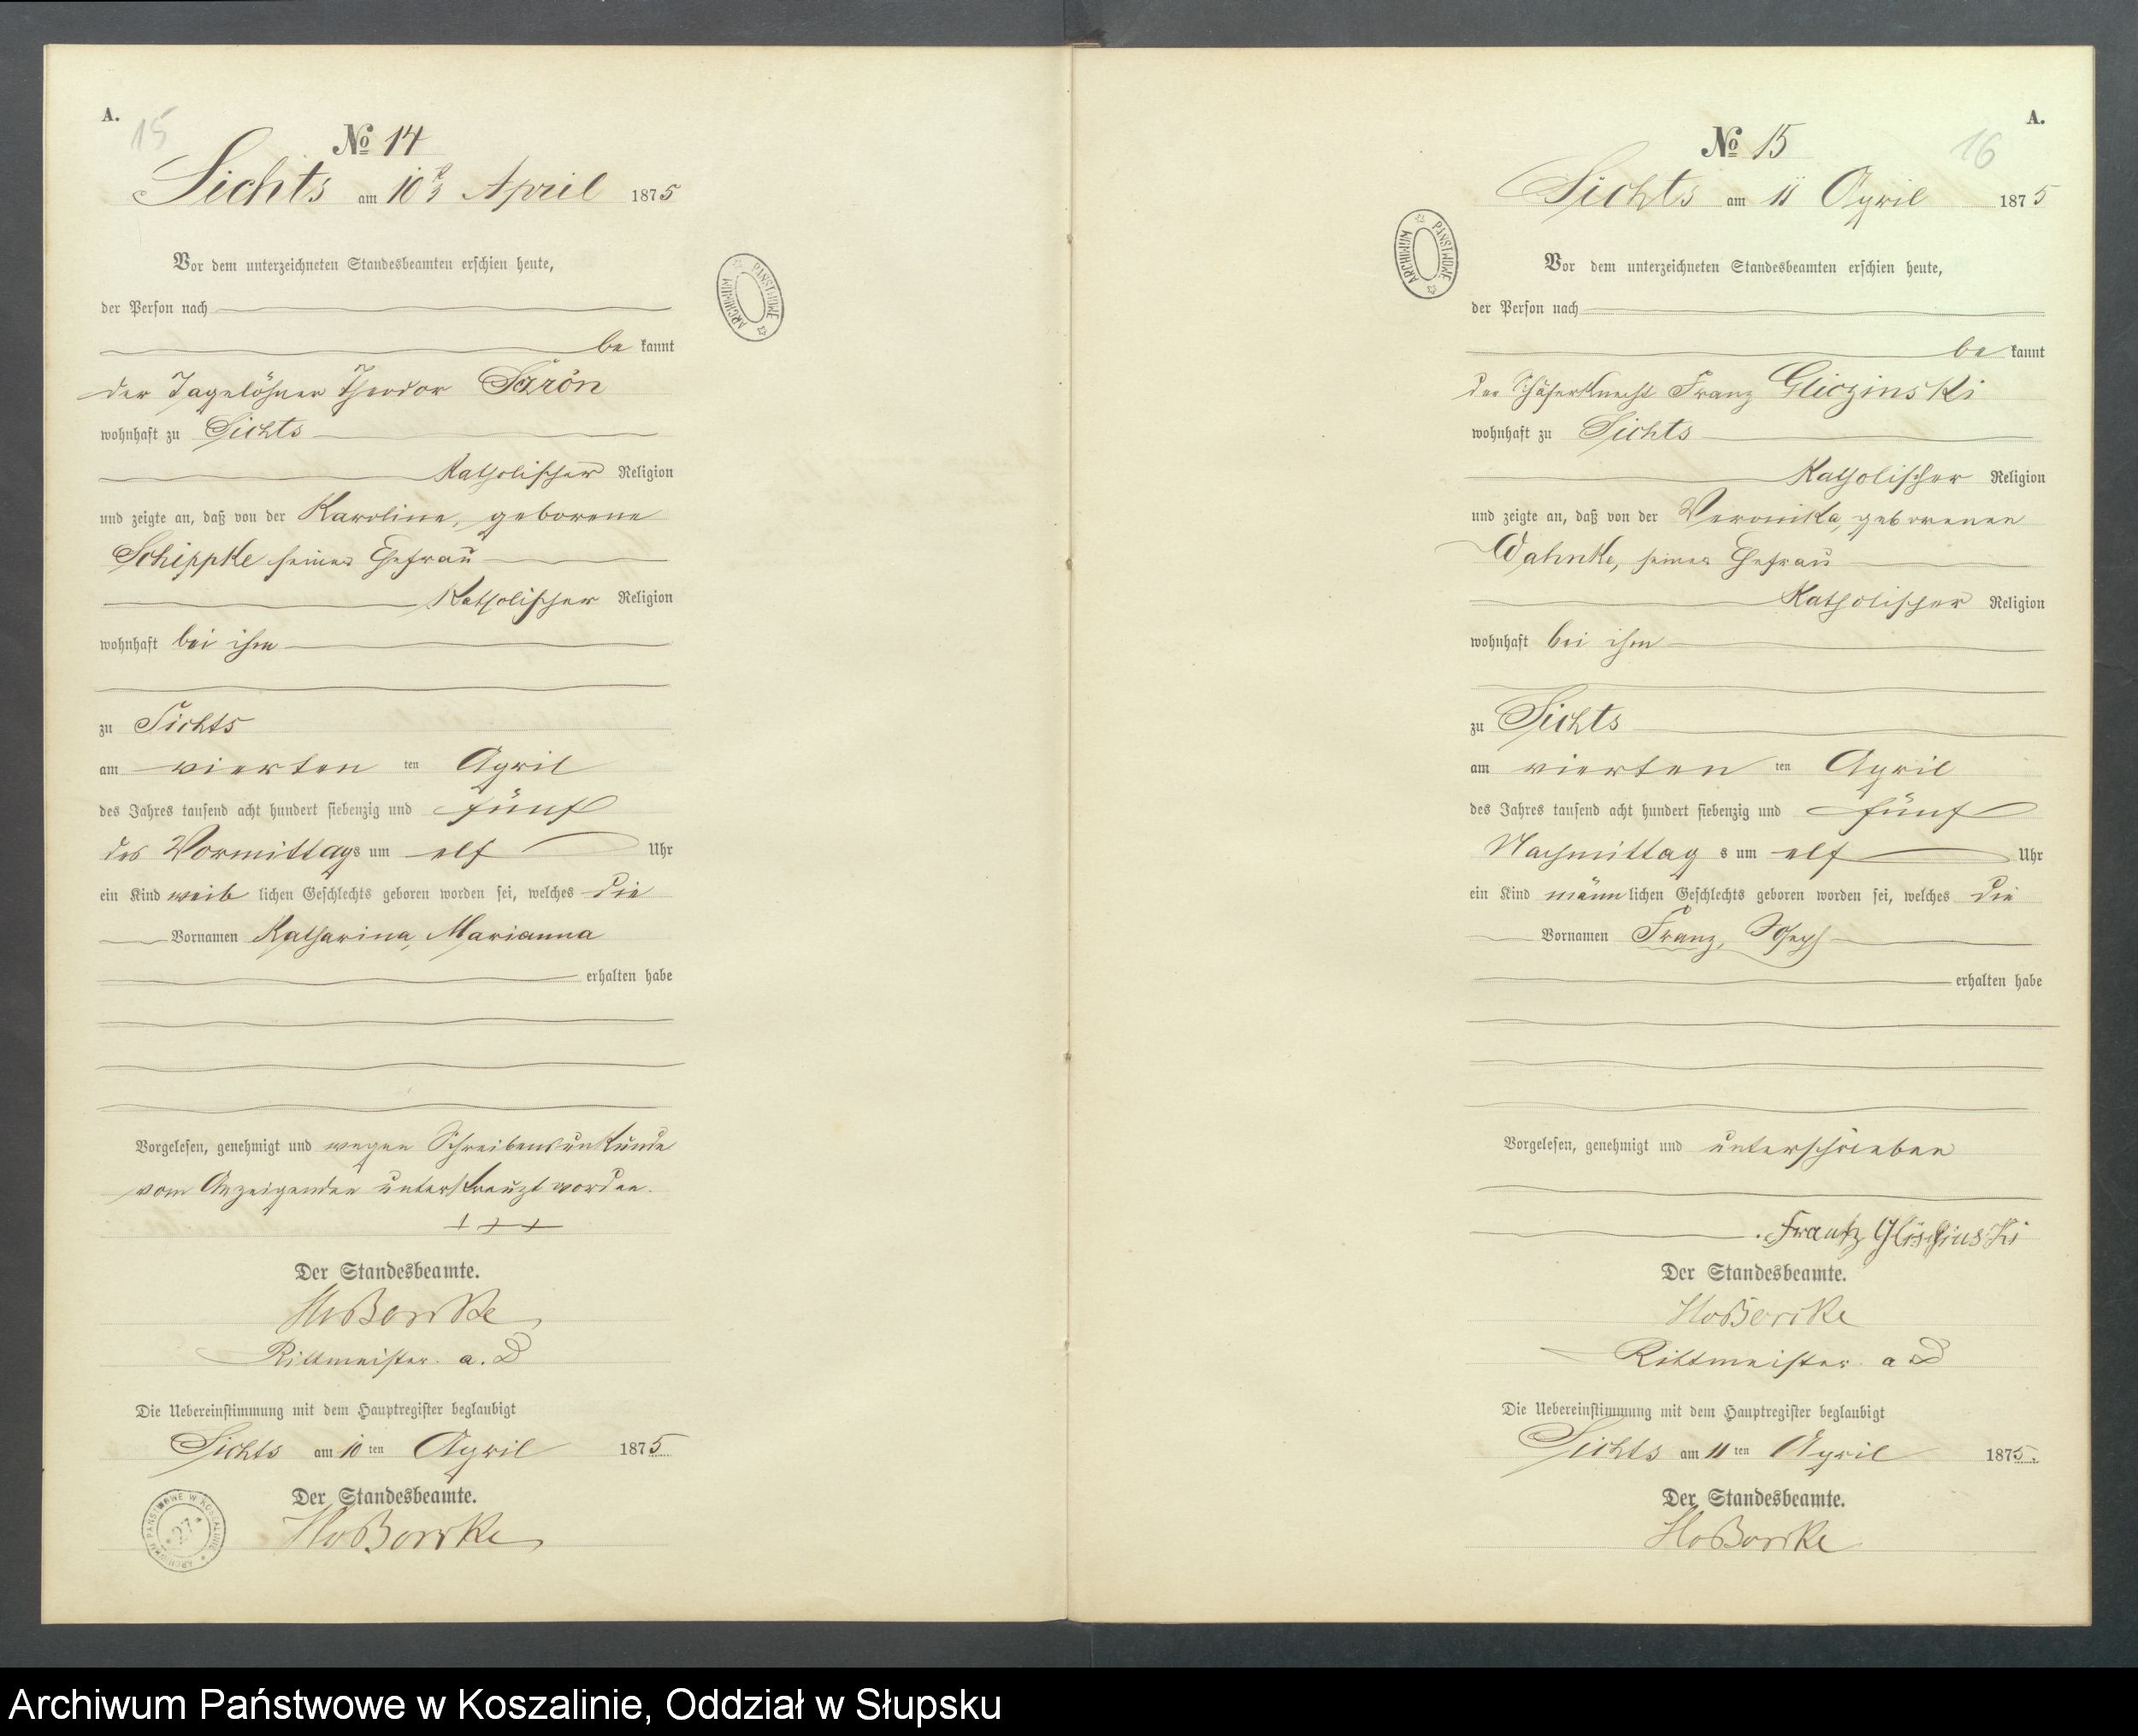 A.
15
№ 14
Sichts am 10t April 1875
Vor dem unterzeichneten Standesbeamten erschien heute,
der Person nach
be kannt
der Tagelöhner Theodor
wohnhaft zu Sichts
Katholischer Religion
und zeigte an, daß von der Karoline, geborene
Schippke seiner Ehefrau
Katholischer Religion
wohnhaft bei ihm
zu Sichts
am vierten ten April
des Jahres tausend acht hundert siebenzig und fünf
des Vormittags um elf Uhr
ein Kind weib lichen Geschlechts geboren worden sei, welches die
Vornamen Katharina, Marianna
erhalten habe
Vorgelesen, genehmigt und wegen Schreibensunkunde
vom Anzeigenden unterkreuzt worden.
+++
Der Standesbeamte.
Rittmeister a. D
Die Uebereinstimmung mit dem Hauptregister beglaubigt
Sichts am 10 ten April 1875
Der Standesbeamte.
ARCHIWUM PAŃSTWOWE W KOSZALINIE
27
ARCHIWUM PAŃSTWOWE
A.
16
№ 15
Sichts am 11 April 1875
ARCHIWUM PAŃSTWOWE
Vor dem unterzeichneten Standesbeamten erschien heute,
der Person nach
be kannt
der Schäferknecht Franz Gliczinski
wohnhaft zu Sichts
Katholischer Religion
und zeigte an, daß von der Veronika, geborenen
Wahnke, seiner Ehefrau
Katholischer Religion
wohnhaft bei ihm
zu Sichts
am vierten ten April
des Jahres tausend acht hundert siebenzig und fünf
Nachmittag s um elf Uhr
ein Kind männ lichen Geschlechts geboren worden sei, welches die
Vornamen Franz, Joseph
erhalten habe
Vorgelesen, genehmigt und unterschrieben
Frantz
Der Standesbeamte.
Rittmeister a D
Die Uebereinstimmung mit dem Hauptregister beglaubigt
Sichts am 11 ten April 1875.
Der Standesbeamte.
Archiwum Państwowe w Koszalinie, Oddział w Słupsku